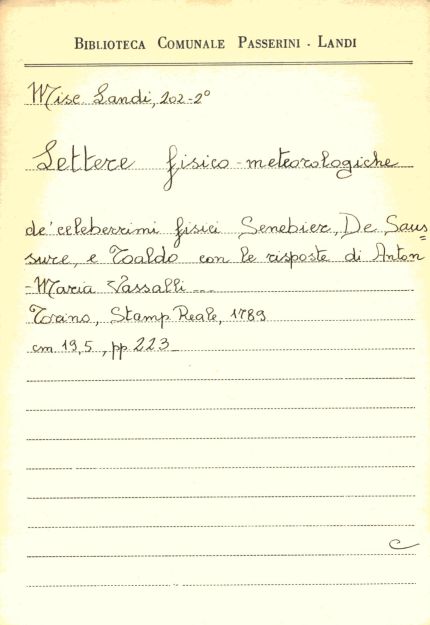 BIBLIOTECA COMUNALE PASSERINI - LANDI
Misc. Landi, 202-2°
Lettere fisico-meteorologiche
de' celeberrimi fisici Senebier, De Saus=
sure, e Toaldo con le risposte di Anton
-Maria Vassalli ...
Torino, Stamp. Reale, 1789
cm. 19,5, pp 223
C